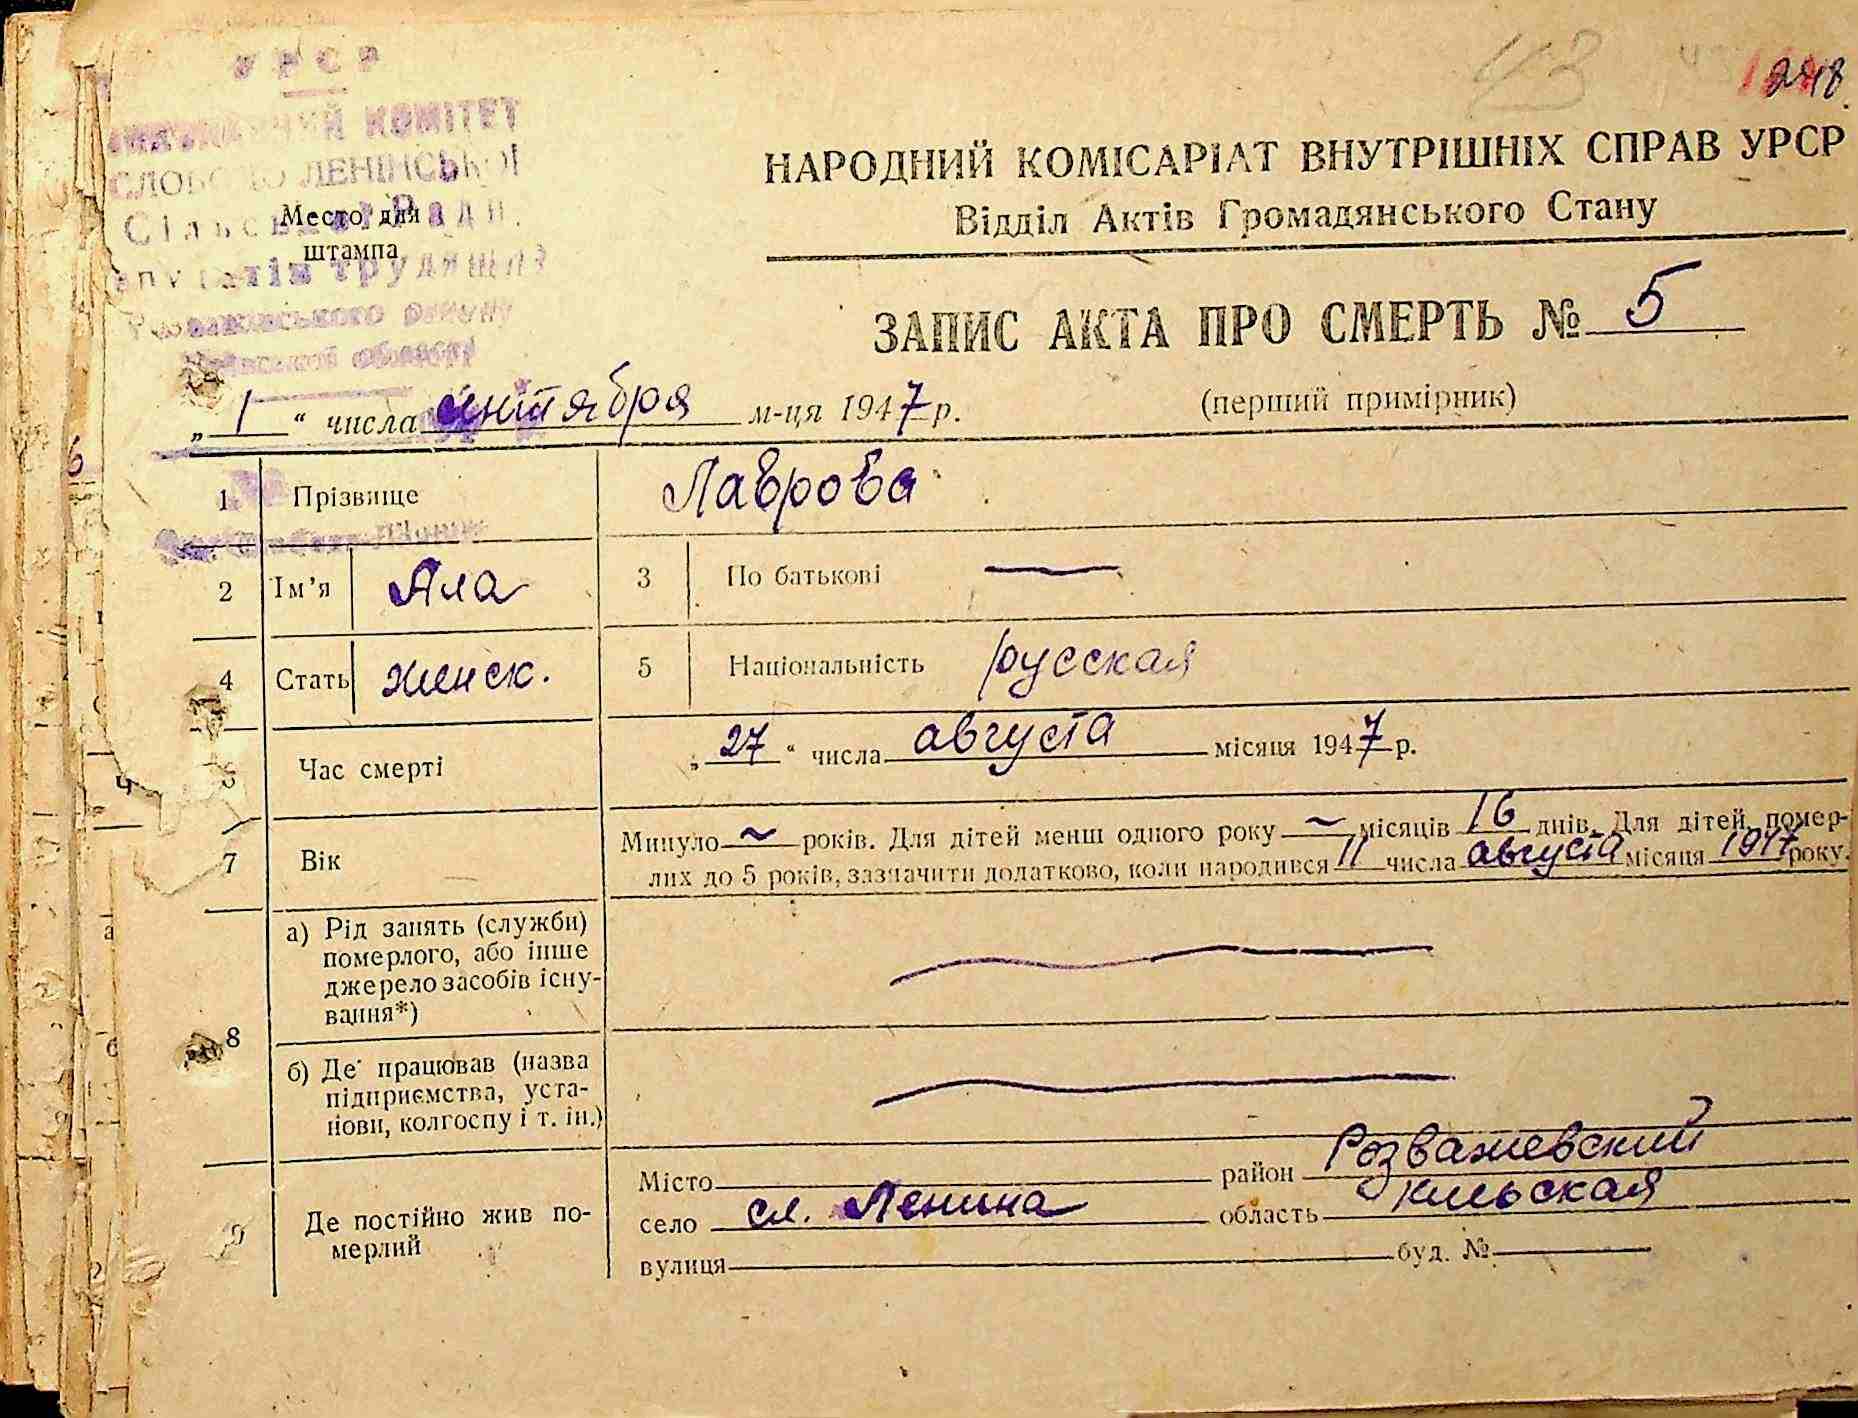 УРСР
КОМІТЕТ
ЛЕНІНСЬКОЇ
Место для
штампа
трудящих
району
області
43
248
НАРОДНИЙ КОМІСАРІАТ ВНУТРІШНІХ СПРАВ УРСР
Відділ Актів Громадянського Стану
ЗАПИС АКТА ПРО СМЕРТЬ № 5
(перший примірник)
„ 1 “ числа сентября м-ця 1947 р.
1 Прізвище Лаврова
2 Ім'я Ала 3 По батькові —
4 Стать женск. 5 Національність русская
Час смерті „ 27 “ числа августа місяця 1947 р.
7 Вік Минуло ~ років. Для дітей менш одного року ~ місяців 16 днів. Для дітей, помер-
лих до 5 років, зазначити додатково, коли народився 11 числа августа місяця 1947 року.
8 а) Рід занять (служби)
померлого, або інше
джерело засобів існу-
вання*)
б) Де працював (назва
підприємства, уста-
нови, колгоспу і т. ін.)
9 Де постійно жив по-
мерлий
Місто район Розважевский
село сл. Ленина область киевская
вулиця буд. №